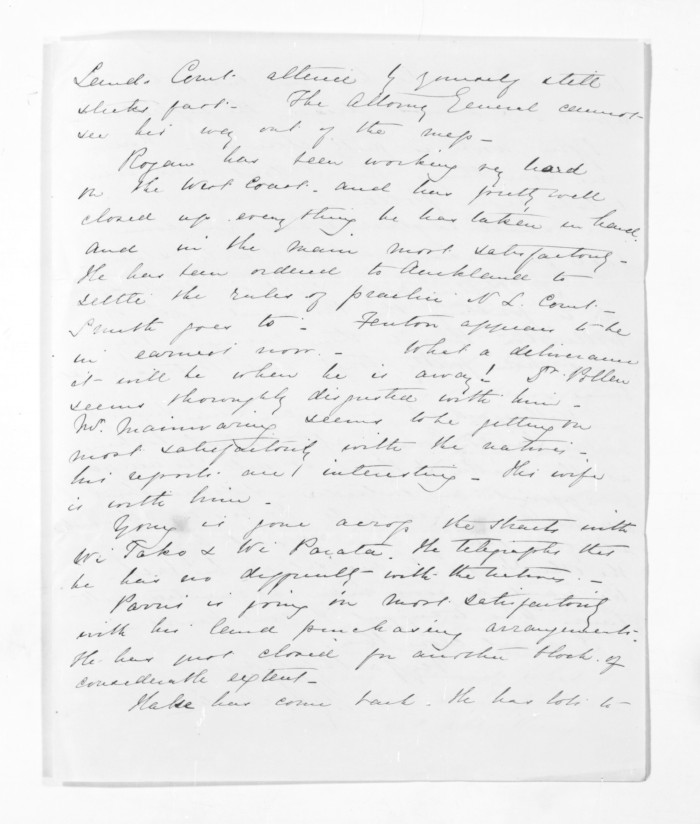 Lands Court altered by yourself still
sticks fast - The Attorney General cannot
see his way out of the mess -
Rogan has been working very hard
on the West Coast. and has pretty well
closed up everything he has taken in hand
and in the main most satisfactorily -
He has been ordered to Auckland to
settle the rules of practice N L. Court -
Smith goes to - Fenton appears to be
in earnest now. - What a deliverance
it will be when he is away! Dr Pollen
seems thoroughly disgusted with him -
Mr. Mainwaring seems to be getting on
most satisfactorily with the natives -
his reports are interesting - His wife
is with him -
Young is gone across the Straits with
Wi Tako & Wi Parata. He telegraphs this
he has no difficulty with the natives. -
Parris is going on most satisfactorily
with his land purchasing arrangements.
He has just closed for another block of
considerable extent -
Halse has come back. He has lots to